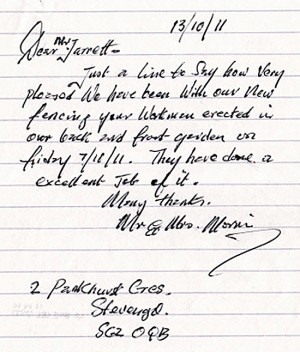 13/10/11
Dear Mr Jarrett-
Just a line to Say how very
pleased We have been With our New
fencing your Workmen erected in
our back and front garden on
friday 7/10/11. They have done a
excellent Job of it.
Many thanks.
Mr & Mrs. Morris
2 Parkhurst Cres.
Stevenage
SG2 0QB